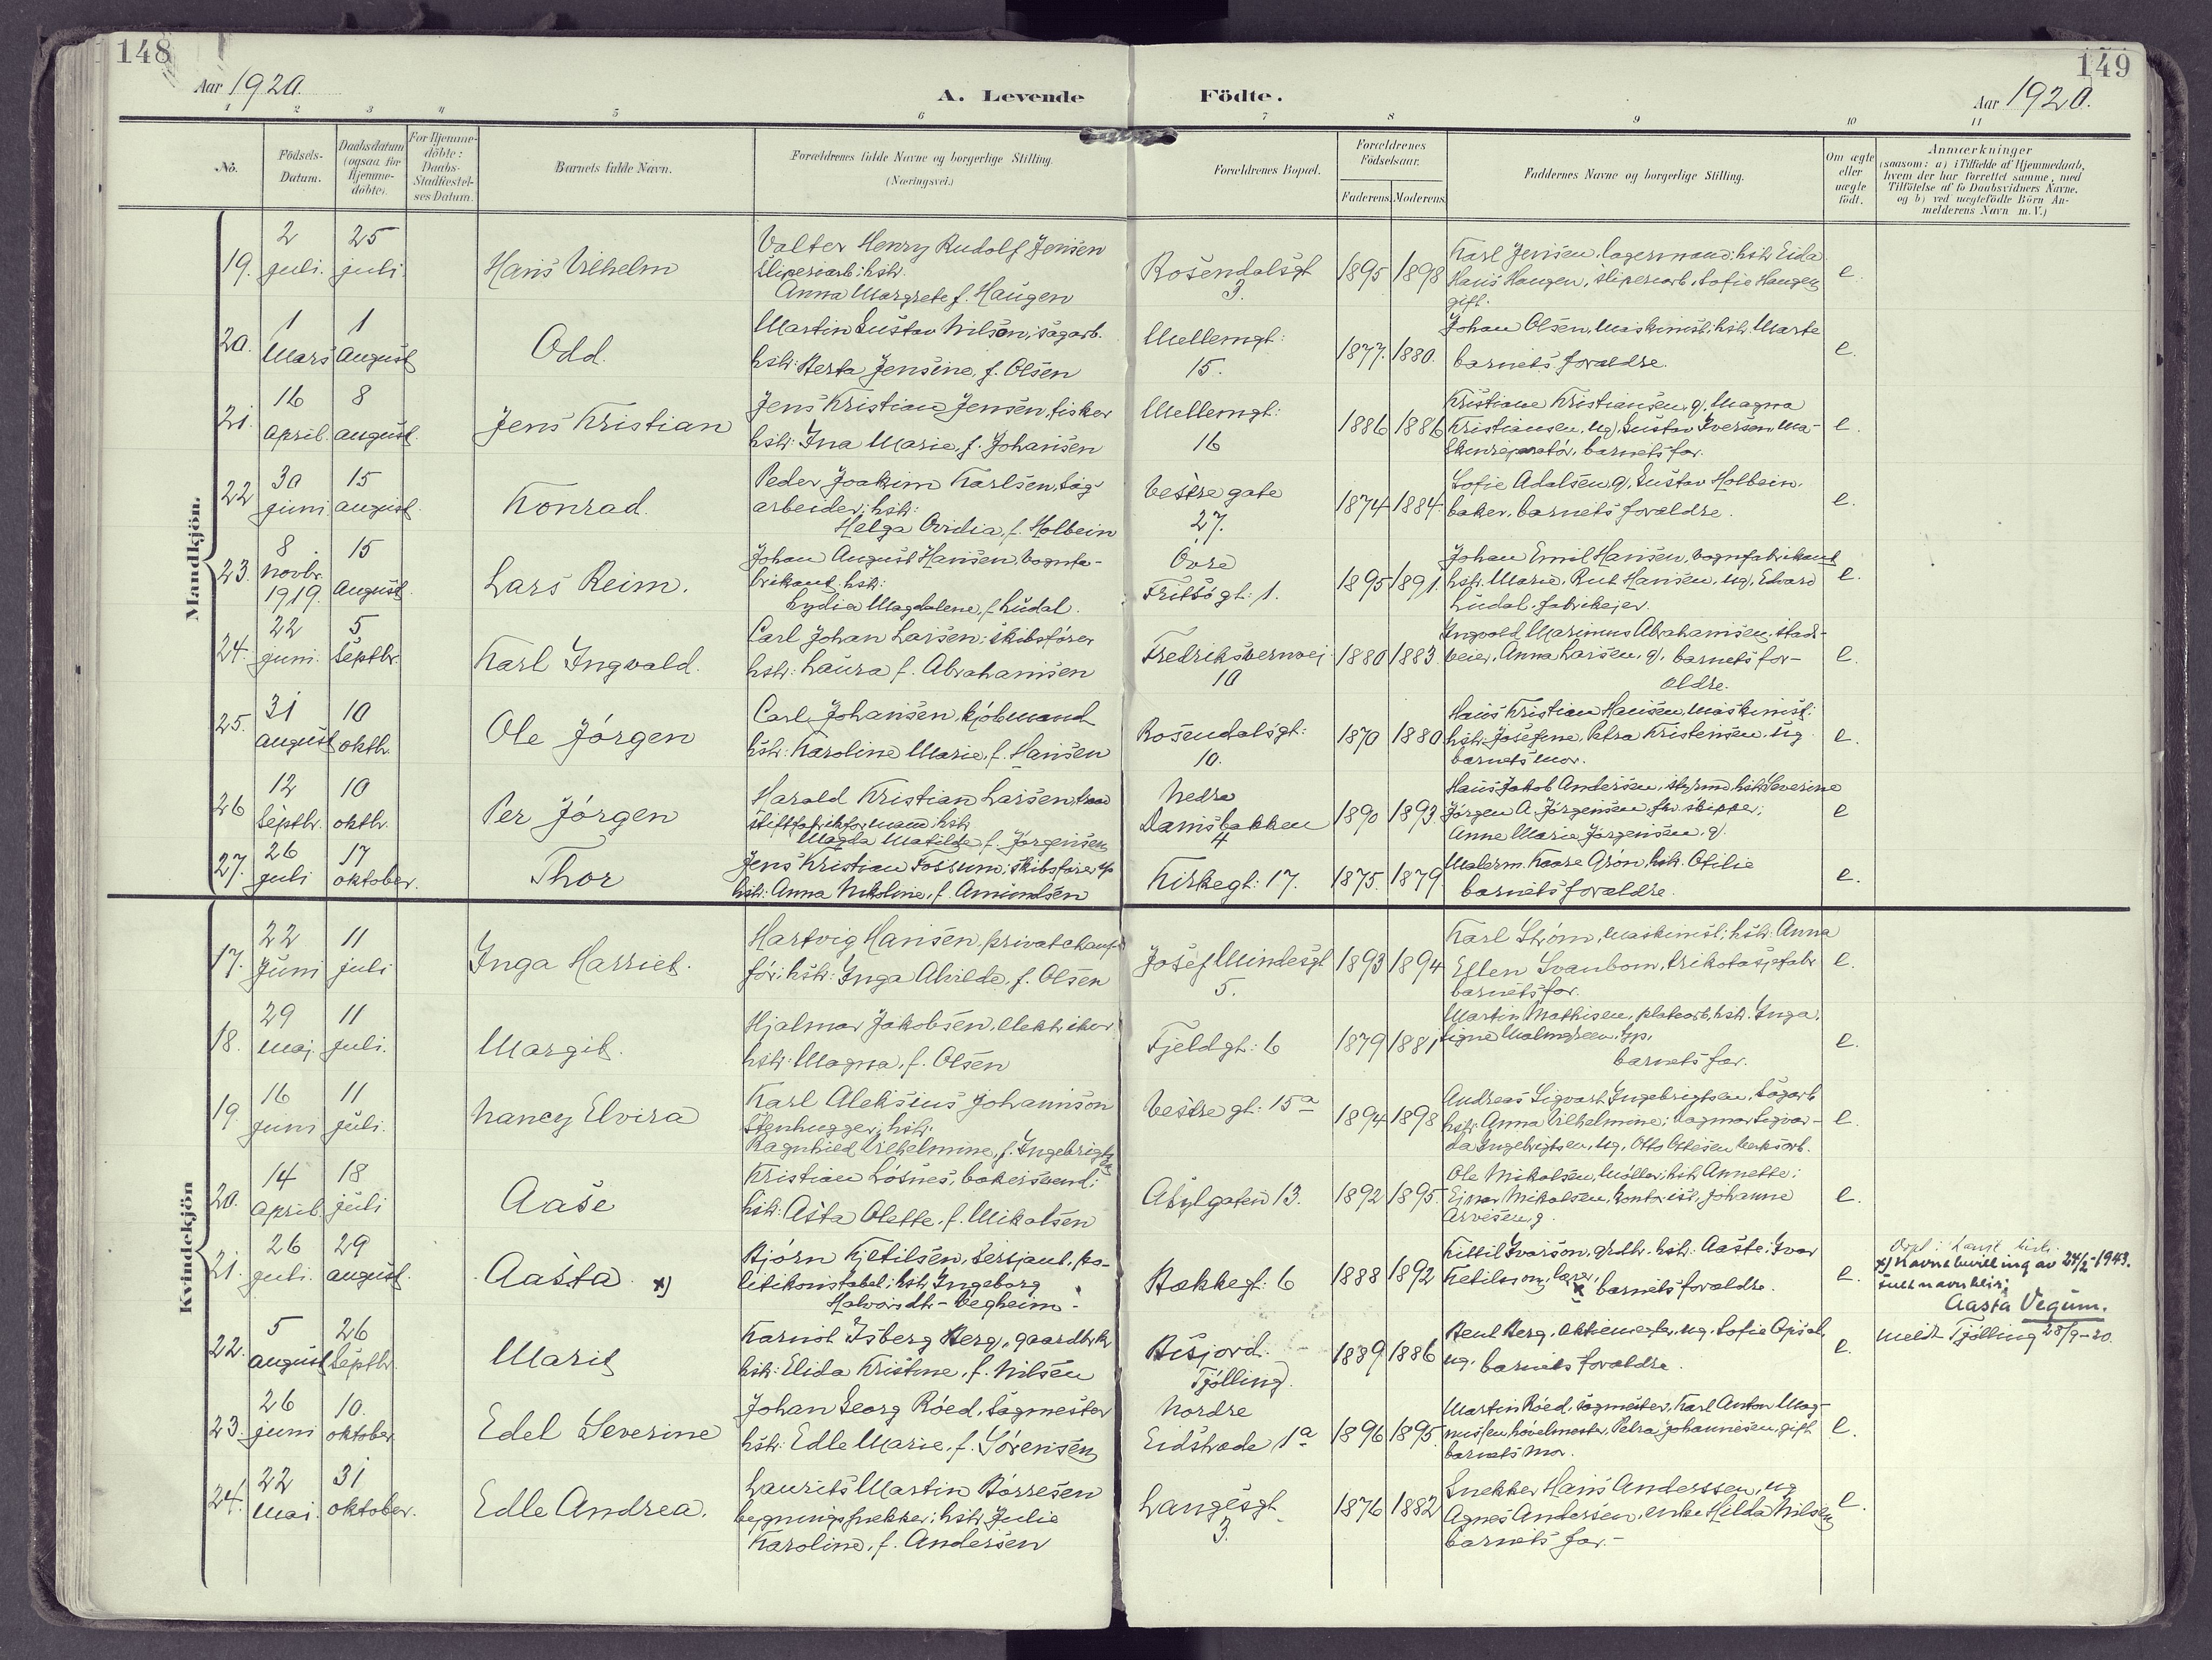 148
149
Aar 1920.
A. Levende Födte.
Aar 1920.
1 2 3 4 5 6 7 8 9 10 11
No.
Födsels-Datum.
Daabsdatum (ogsaa for Hjemme-döbte).
For Hjemme-döbte: Daabs-Stadfæstel-ses Datum.
Barnets fulde Navn.
Forældrenes fulde Navne og borgerlige Stilling. (Næringsvei.)
Forældrenes Bopæl.
Forældrenes Födselsaar.
Faderens. Moderens.
Faddernes Navne og borgerlige Stilling.
Om ægte eller uægte födt.
Anmærkninger (saasom: a) i Tilfælde af Hjemmedaab, hvem der har forrettet samme, med Tilföielse af to Daabsvidners Navne, og b) ved uægtefödte Börn An-melderens Navn m. V.)
Mandkjön.
19. 2 juli. 25 juli. Hans Vilhelm
Valter Henry Rudolf Jensen
sliperiarb: hstr.
Anna Margrete f. Haugen
Rosendalsgt 3. 1895 1898
Karl Jensen, lagermand: hstr Eida
Hans Haugen, sliperiarb, Sofie Haugen
gift. e.
20. 1 Mars 1 August Odd.
Martin Gustav Nilsen, sagarb.
hstr: Berta Jensine, f. Olsen
Mellemgt: 15. 1877. 1880.
Johan Olsen, Maskinist, hstr. Marte
barnets forældre. e.
21. 16 april. 8 august. Jens Kristian
Jens Kristian Jensen, fisker
hstr: Ina Marie, f. Johansen
Mellemgt: 16 1886 1886
Kristiane Kristiansen, g, Magna
Kristiansen, ug, Gustav Iversen, Ma-
skinreparatör, barnets far. e.
22 30 juni 15 august. Konrad.
Peder Joakim Karlsen, sag-
arbeider; hstr:
Helga Ovidia, f. Holbein
Vestre gate 27. 1874 1884.
Sofie Adalsen g, Gustav Holbein,
baker, barnets forældre. e.
23. 8 novbr. 1919. 15 August. Lars Reim.
Johan August Hansen, vognfa-
brikant, hstr:
Lydia Magdalene, f Lüdal.
Övre Fritsögt: 1. 1895 1891.
Johan Emil Hansen, vognfabrikant
hstr. Marie, Rut Hansen, ug, Edvard
Lüdal, fabrikejer. e.
24. 22 juni. 5 Septbr. Karl Ingvald.
Carl Johan Larsen: skibsförer
hstr: Laura f. Abrahamsen
Fredriksvernvej 10 1880 1883.
Ingvald Marinius Abrahamsen,
veier, Anna Larsen, g, barnets for-
ældre. e.
25. 31 august 10 oktbr. Ole Jörgen
Carl Johansen, kjöbmand
hstr: Karoline Marie, f. Hansen
Rosendalsgt: 10. 1870 1880
Hans Kristian Hansen, Maskinist:
hstr: Josefine, Petra Kristensen, ug
barnets mor. e.
26 12 Septbr. 10 oktbr. Per Jörgen
Harald Kristian Larsen, traad
stiftfabrikformand: hstr
Magda Matilde f. Jörgensen
Nedre Damsbakken 4 1890 1893
Hans Jakob Andersen, styrmd, hstr Severine
Jörgen A. Jörgensen, fhv skipper;
Anne Marie Jörgensen. g. e
27. 26 juli 17 oktober. Thor
Jens Kristian Fossum: skibsförer
hstr: Anna Nikoline, f. Amundsen
Kirkegt: 17. 1875. 1879
Malerm. Kaare Grön, hstr. Otilie
barnets forældre. e.
Kvindekjön
17. 22 Juni 11 juli Inga Harriet.
Hartvig Hansen, privatchauf-
för: hstr: Inga Alvilde, f. Olsen
Josef Mindesgt 5. 1893 1894
Karl Ström, Maskinist; hstr: Anna
Ellen Svanbom, trikotasjefabr
barnets far. e.
18. 29 Maj. 11 Juli. Margit.
Hjalmar Jakobsen, elektriker
hstr: Magna, f. Olsen
Fjeldgt: 6 1879 1881
Martin Mathisen, platearb, hstr. Inga,
Signe Malmgreen,
barnets far. e.
19. 16 juni 11 juli. Nancy Elvira
Karl Aleksius Johannson
Stenhugger; hstr.
Ragnhild Vilhelmine, f. Ingebrigtsen
Vestre gt: 15a 1894 1898
Andreas Sigvart Ingebrigtsen, Sagarb
hstr: Anna Vilhelmine; Dagmar Sigvar-
da Ingebrigtsen, ug, Otto Ottesen Verksarb. e.
20. 14 april. 18 juli Aase
Kristian Lösnes, bakersvend;
hstr: Asta Olette, f. Mikalsen
Asylgaten 13. 1892 1895.
Ole Mikalsen, Möller; hstr Annette:
Ejnar Mikalsen, kontorist, Johanne
Arvesen, g. e.
21. 26 juli. 29 august. Aasta x)
Björn Kjetilsen, Sersjant, po-
litikonstabel: hstr Ingeborg
Halvorsdtr - Vegheim -
Bakkegt: 6 1888 1892
Kittil Ivarson, grdbr. hstr. Aaste: Ivar
Ketilson, lærer, barnets forældre. e.
x) Navnebevilling av 24/2-1943.
fullt navn blir;
Aasta Vegum.
22. 5 august 26 Septbr. Marit
Karniol Isberg Berg, gaardbrkr
hstr: Elida Kristine, f. Nilsen
Bisjord. Tjölling. 1889 1886
Berg, ug, Sofie Opsal,
ug. barnets forældre. e.
meldt Tjölling 28/9-20.
23. 26 juni 10. oktober Edel Severine
Johan Georg Röed, Sagmester
hstr: Edle Marie, f. Sörensen
Nordre Eidstrade 1a 1896 1895.
Martin Röed, sagmester, Karl Anton Mag-
nussen, hövelmester, Petra Johannesen, gift
barnets mor. e.
24. 22 Mai. 31 oktober. Edle Andrea.
Laurits Martin Börresen
bygningssnekker: hstr Julie
Karoline, f. Andersen
Langesgt 3. 1876 1882
Snekker Hans Anderssen, ug
Agnes Andersen, enke Hilda Nilsen
barnets far.- e.